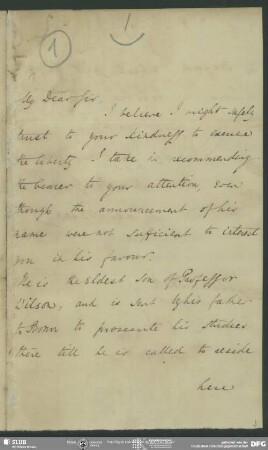 1
1
My Dear Sir
I believe I might safely
trust to your kindness to excuse
the liberty I take in recommending
the bearer to your attention, even
though the announcement of his
name were not sufficient to interest
you in his favour.
He is the Eldest son of Professor
Wilson, and is sent by his father
to Bonn to prosecute his studies
there till he is called to reside
here
SLUB
DFG